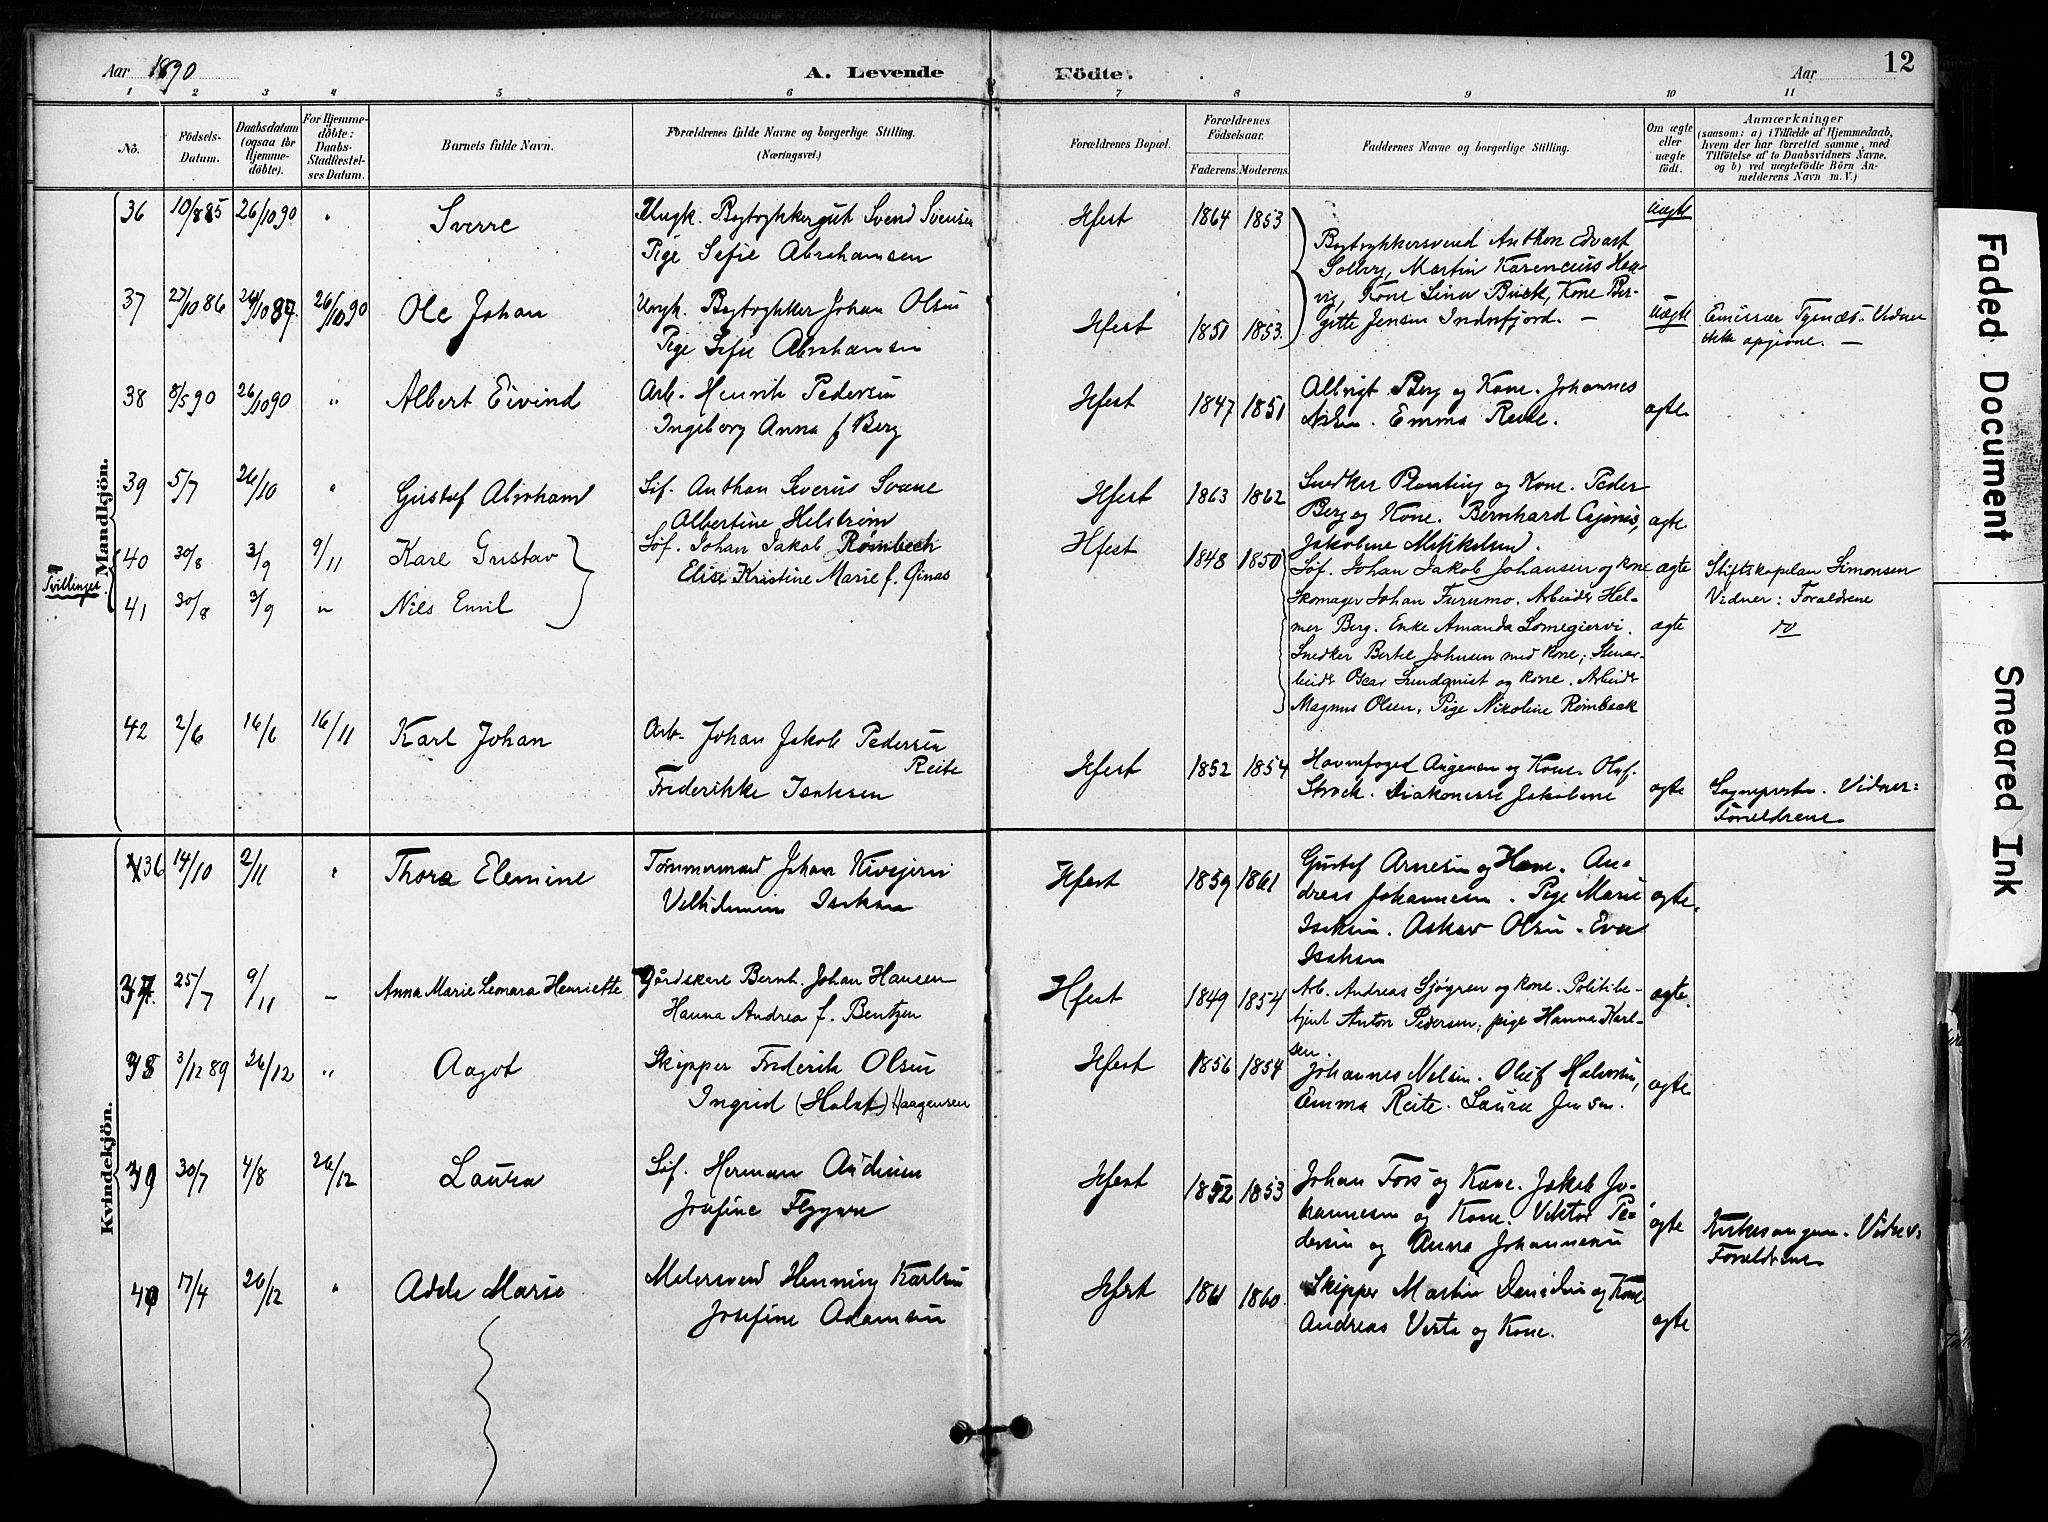 Aar 1890
A. Levende
Födte.
Aar
12
1 2 3 4 5 6 7 8 9 10 11
No.
Födsels-
Datum.
Daabsdatum
(ogsaa for
Hjemme-
döbte).
For Hjemme-
döbte:
Daabs-
Stadfæstel-
ses Datum.
Barnets fulde Navn.
Forældrenes fulde Navne og borgerlige Stilling.
(Næringsvei.)
Forældrenes Bopæl.
Forældrenes
Födselsaar.
Faderens. Moderens.
Faddernes Navne og borgerlige Stilling.
Om ægte
eller
uægte
födt.
Anmærkninger
(saasom: a) i Tilfælde af Hjemmedaab,
hvem der har forrettet samme, med
Tilföielse af to Daabsvidners Navne,
og b) ved uægtefödte Börn An-
melderens Navn m. V.)
Mandkjön.
36 10/8 85 26/10 90 " Sverre
Ungk. Bogtrykkergut Svend Svensen
Pige Sofie Abrahamsen
Hfest 1864 1853
Bogtrykkersvend Anthon Edvart
Solberg, Martin Karencius Hau-
vig, Kone Lina Buck, Kone Ber-
gitte Jensen Indrefjord. —
Uægte
37 27/10 86 26/10 87. 26/10 90 Ole Johan
Ungk. Bogtrykker Johan Olsen
Pige Sofie Abrahamsen
Hfest 1851 1853.
Uægte
Emissær Tyrnæs. Vidner
ikke opgivne. —
38 8/5 90 26/10 90 " Albert Eivind
Arb. Henrik Pedersen
Ingeborg Anna f Berg
Hfest 1847 1851
Albrigt Berg og Kone. Johannes
Nilsen. Emma Reite.
ægte
39 5/7 26/10 " Gustaf Abraham
Søf. Anthon Severus Svane
Albertine Helstrøm
Hfest 1863 1862
Snedker Planting og Kone. Peder
Berg og Kone. Bernhard
Jakobine Mikkelsen.
ægte
Tvillinger
40 30/8 3/9 9/11 Karl Gustav
Søf. Johan Jakob Rømbech
Elise Kristine Marie f. Ginas
Hfest 1848 1850
Søf. Johan Jakob Johansen og kone
Skomager Johan Furumo. Arbeider Hel-
mer Berg. Enke Amanda Lomegiervi.
Snedker Bertel Johnsen med kone; Stenar-
beider Oscar Lundqvist og kone. Arbeider
Magnus Olsen, Pige Nikoline Rømbaak
ægte
Stiftskapelan Simonsen
Vidner: Forældrene
41 30/8 3/9 " Nils Emil
ægte
do
42 2/6 16/6 16/11 Karl Johan
Arb. Johan Jakob Pedersen
Reite
Frederikke Isaksen
Hfest 1852 1854
Havnefoged Aagensen og Kone. Oluf
Strøck. Diakonesse Jakobine
ægte
Sogneprsten. Vidner:
Forældrene
Kvindekjön.
36 14/10 2/11 " Thora Elemine
Tømmermand Johan Kivijervi
Vilhelmine Isaksen
Hfest 1859 1861
Gustaf Arnesen og Kone. An-
dreas Johannesen. Pige Marie
Isaksen. Oskar Olsen. Eva
Isaksen
ægte.
37. 25/7 9/11 — Anna Marie Lenora Henriette
Gårdskarl Bernh. Johan Hansen
Hanna Andrea f. Bentzen
Hfest 1849 1854
Arb. Andreas Sjøgren og kone. Politibe-
tjent Anton Pedersen; pige Hanna Karl-
sen.
ægte.
38 3/12 89 26/12 " Aagot
Skipper Frederik Olsen
Ingrid (Holst) Haagensen
Hfest 1856 1854
Johannes Nilsen. Oluf Halvorsen,
Emma Reite. Laura Jensen.
ægte
39 30/7 4/8 26/12 Laura
Søf. Herman Andersen
Josefine Flygare
Hfest 1852 1853
Johan Fors og Kone. Jakob Jo-
hannesen og Kone. Viktor Pe-
dersen og Anna Johannesen
ægte
Kirkesangeren. Vidner:
Forældrene
40 17/4 26/12 " Adele Marie
Malersvend Henning Karlsen
Josefine Adamsen
Hfest 1861 1860.
Skipper Martin Danielsen og Kone
Andreas Verta og Kone.
ægte
Faded Document
Smeared Ink